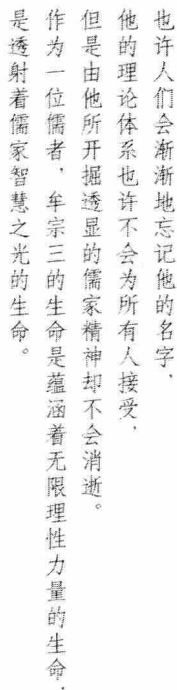 也许人们会渐渐地忘记他的名字，
他的理论体系也许不会为所有人接受，
但是由他所开掘透显的儒家精神却不会消逝。
作为一位儒者，牟宗三的生命是蕴涵着无限理性力量的生命，
是透射着儒家智慧之光的生命。